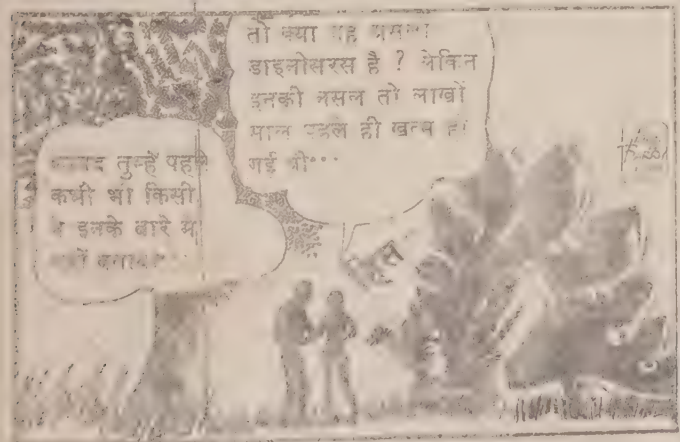 तो क्या यह असली
डाइनोसरस है ? लेकिन
इनकी नसल तो लाखों
साल पहले ही खत्म हो
गई थी...
शायद तुम्हें पहले
कभी भी किसी
ने इनके बारे में
नहीं बताया...